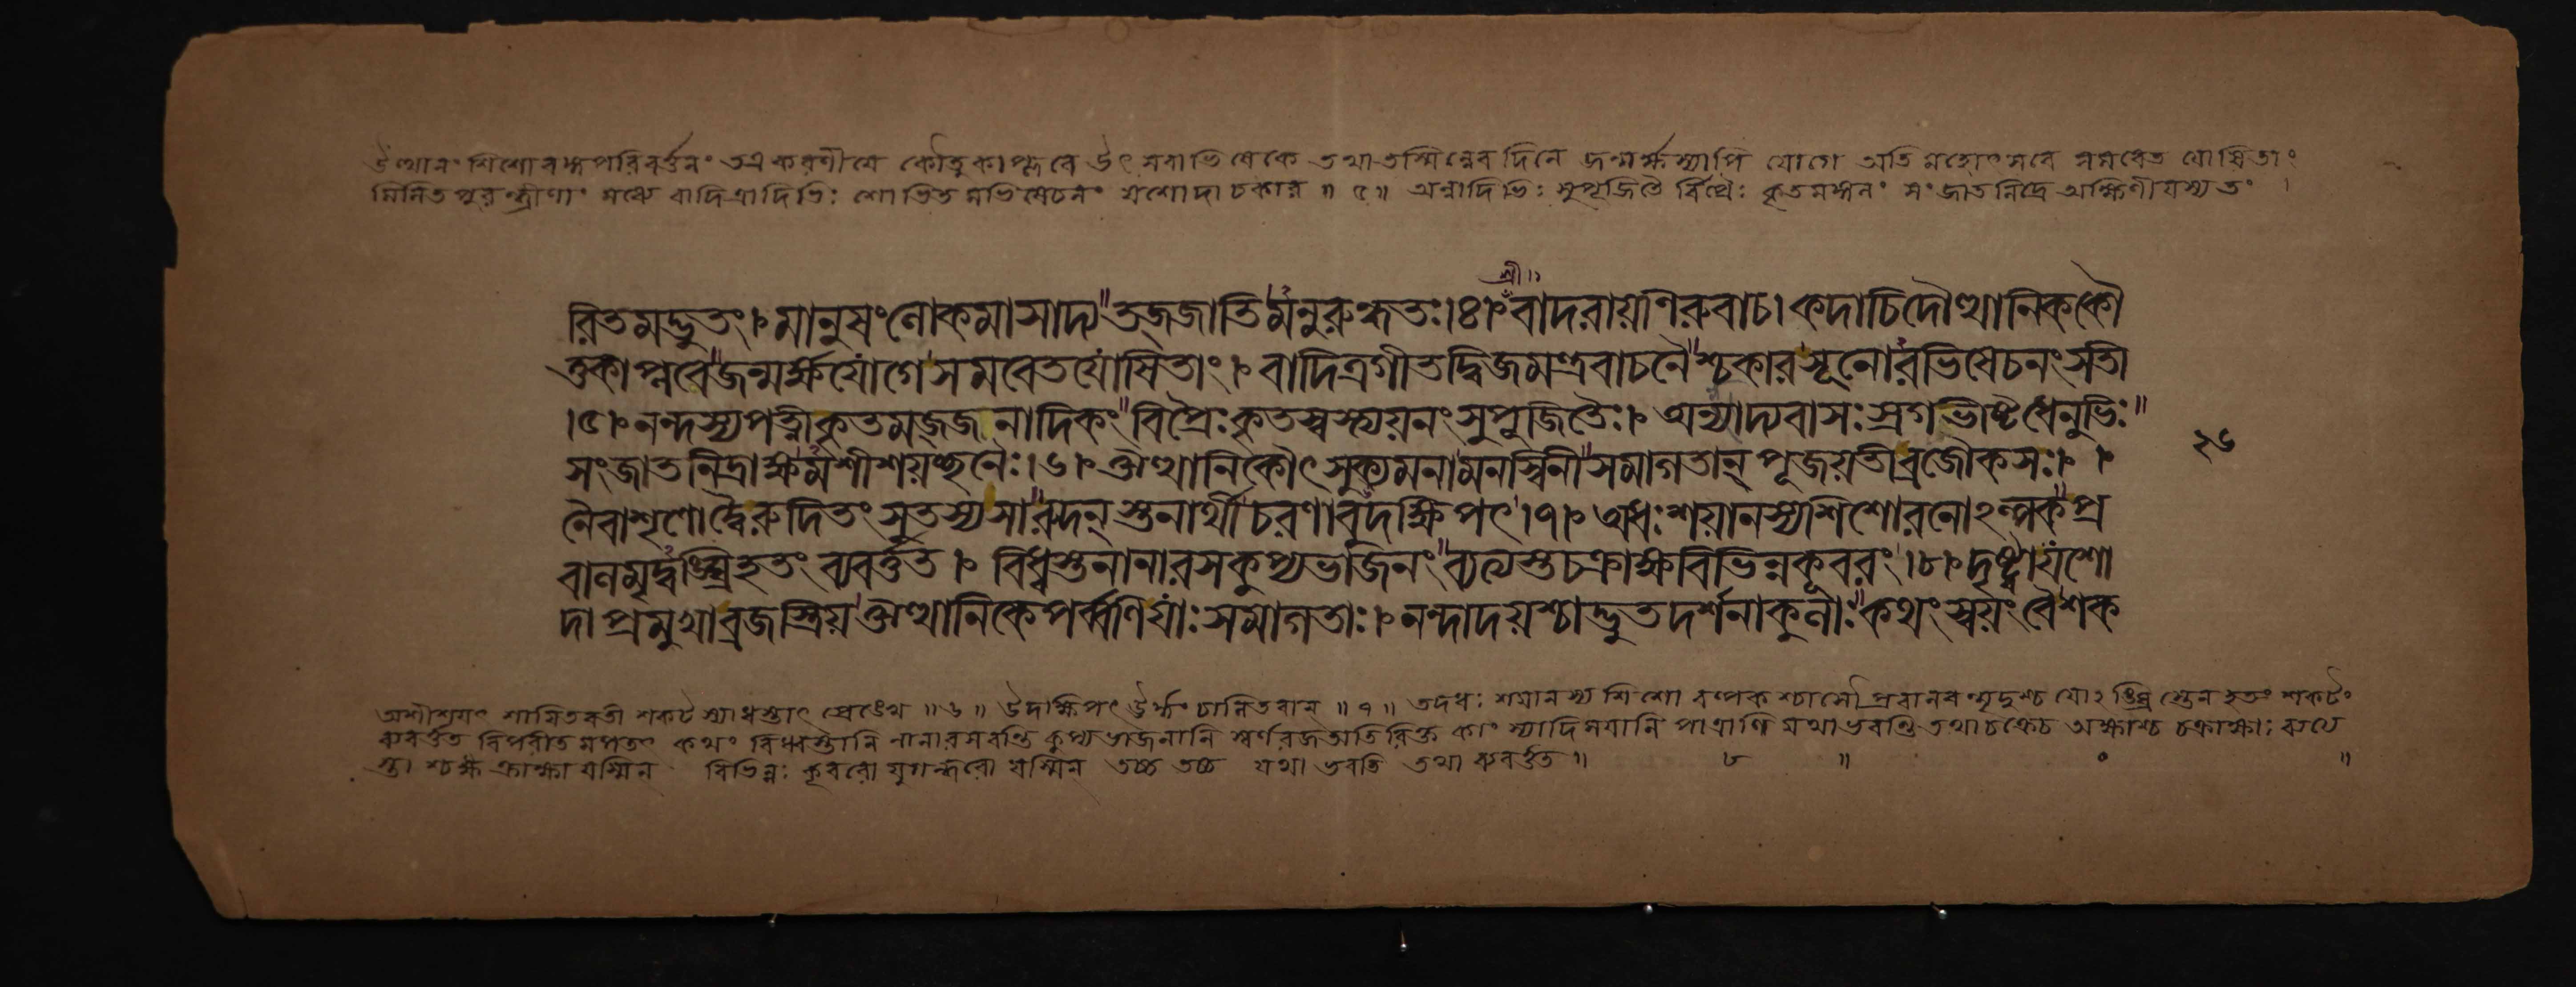 উত্থানং শিশোরঙ্গপরিবর্ত্তনং তত্র করণীয়ে কৌতুকাপ্লবে উৎসবাভিষেকে তথা তস্মিন্নেব দিনে জন্মর্ক্ষস্যাপি যোগে অতি মহোৎসবে সমবেত যোষিতাং
মিলিত পুরন্ধ্রীণাং মধ্যে বাদিত্রাদিভিঃ শোভিত মভিষেচনং যশোদা চকার ॥ ৫॥ অন্নাদিভিঃ সুপূজিতৈ র্বিপ্রৈঃ কৃত সংজাতনিদ্রে অক্ষিণী যস্য তং ।
শ্রী॥
রিতমদ্ভুতং।৷ মানুষংলোকমাসাদ্য"তজ্জাতিমনুরুন্ধতঃ।৪৷ বাদরায়ণিরুবাচ। কদাচিদৌত্থানিককৌ
তুকাপ্লবে"জন্মর্ক্ষযোগেসমবেতযোষিতাং।৷ বাদিত্রগীতদ্বিজমন্ত্রবাচনৈ"শ্চকারসূনোরভিষেচনংসতী
।৫৷ নন্দস্যপত্নীকৃতমজ্জনাদিকং"বিপ্রৈঃকৃতস্বস্ত্যয়নংসুপূজিতৈঃ।৷ অন্নাদ্যবাসঃস্রগভীষ্টধেনুভিঃ"
সংজাতনিদ্রাক্ষমশীশয়চ্ছনৈঃ।৬৷ ঔত্থানিকৌৎসুক্যমনামনস্বিনী"সমাগতান্ পূজয়তীব্রজৌকসঃ।৷ ২৬
নৈবাশৃণোদ্বৈরুদিতংসুতস্যসা"রুদন্ স্তনার্থীচরণাবুদক্ষিপৎ।৭৷ অধঃশয়ানস্যশিশোরনোঽল্পক"প্র
বালমৃদ্বঙ্ঘ্রিহতংব্যবর্ত্তত ৷ বিধ্বস্তনানারসকুপ্যভাজনং"ব্যত্যস্তচক্রাক্ষবিভিন্নকূবরং।৮৷ দৃষ্ট্বাযশো
দাপ্রমুখাব্রজস্ত্রিয়"ঔত্থানিকেপর্ব্বণিযাঃসমাগতাঃ।৷ নন্দাদয়শ্চাদ্ভুতদর্শনাকুলাঃ"কথংস্বয়ংবৈশক
অশীশয়ৎ শায়িতবতী শকটস্যাধস্তাৎ ॥৬॥ উদক্ষিপৎ উর্দ্ধং চালিতবান্ ॥৭॥ তদধঃ শয়ানস্য শিশো রল্পক শ্চাসৌ প্রবালবন্মৃদুশ্চ যোঽঙ্ঘ্রি স্তেন হতং শকটং
ব্যবর্ত্তত বিপরীত মপতৎ কথং বিধ্বস্তানি নানারসবন্তি কুপ্যভাজনানি স্বর্ণরজতাতিরিক্ত কাংস্যাদিময়ানি পাত্রাণি যথাভবন্তি তথা চক্রেচ অক্ষাশ্চ চক্রাক্ষাঃ ব্যত্য
স্তা শ্চক্রাক্ষা যস্মিন্ বিভিন্নঃ কূবরো যুগন্ধরো যস্মিন্ তচ্চ তচ্চ যথা ভবতি তথা ব্যবর্ত্তত ॥ ৮ ॥ ০ ॥